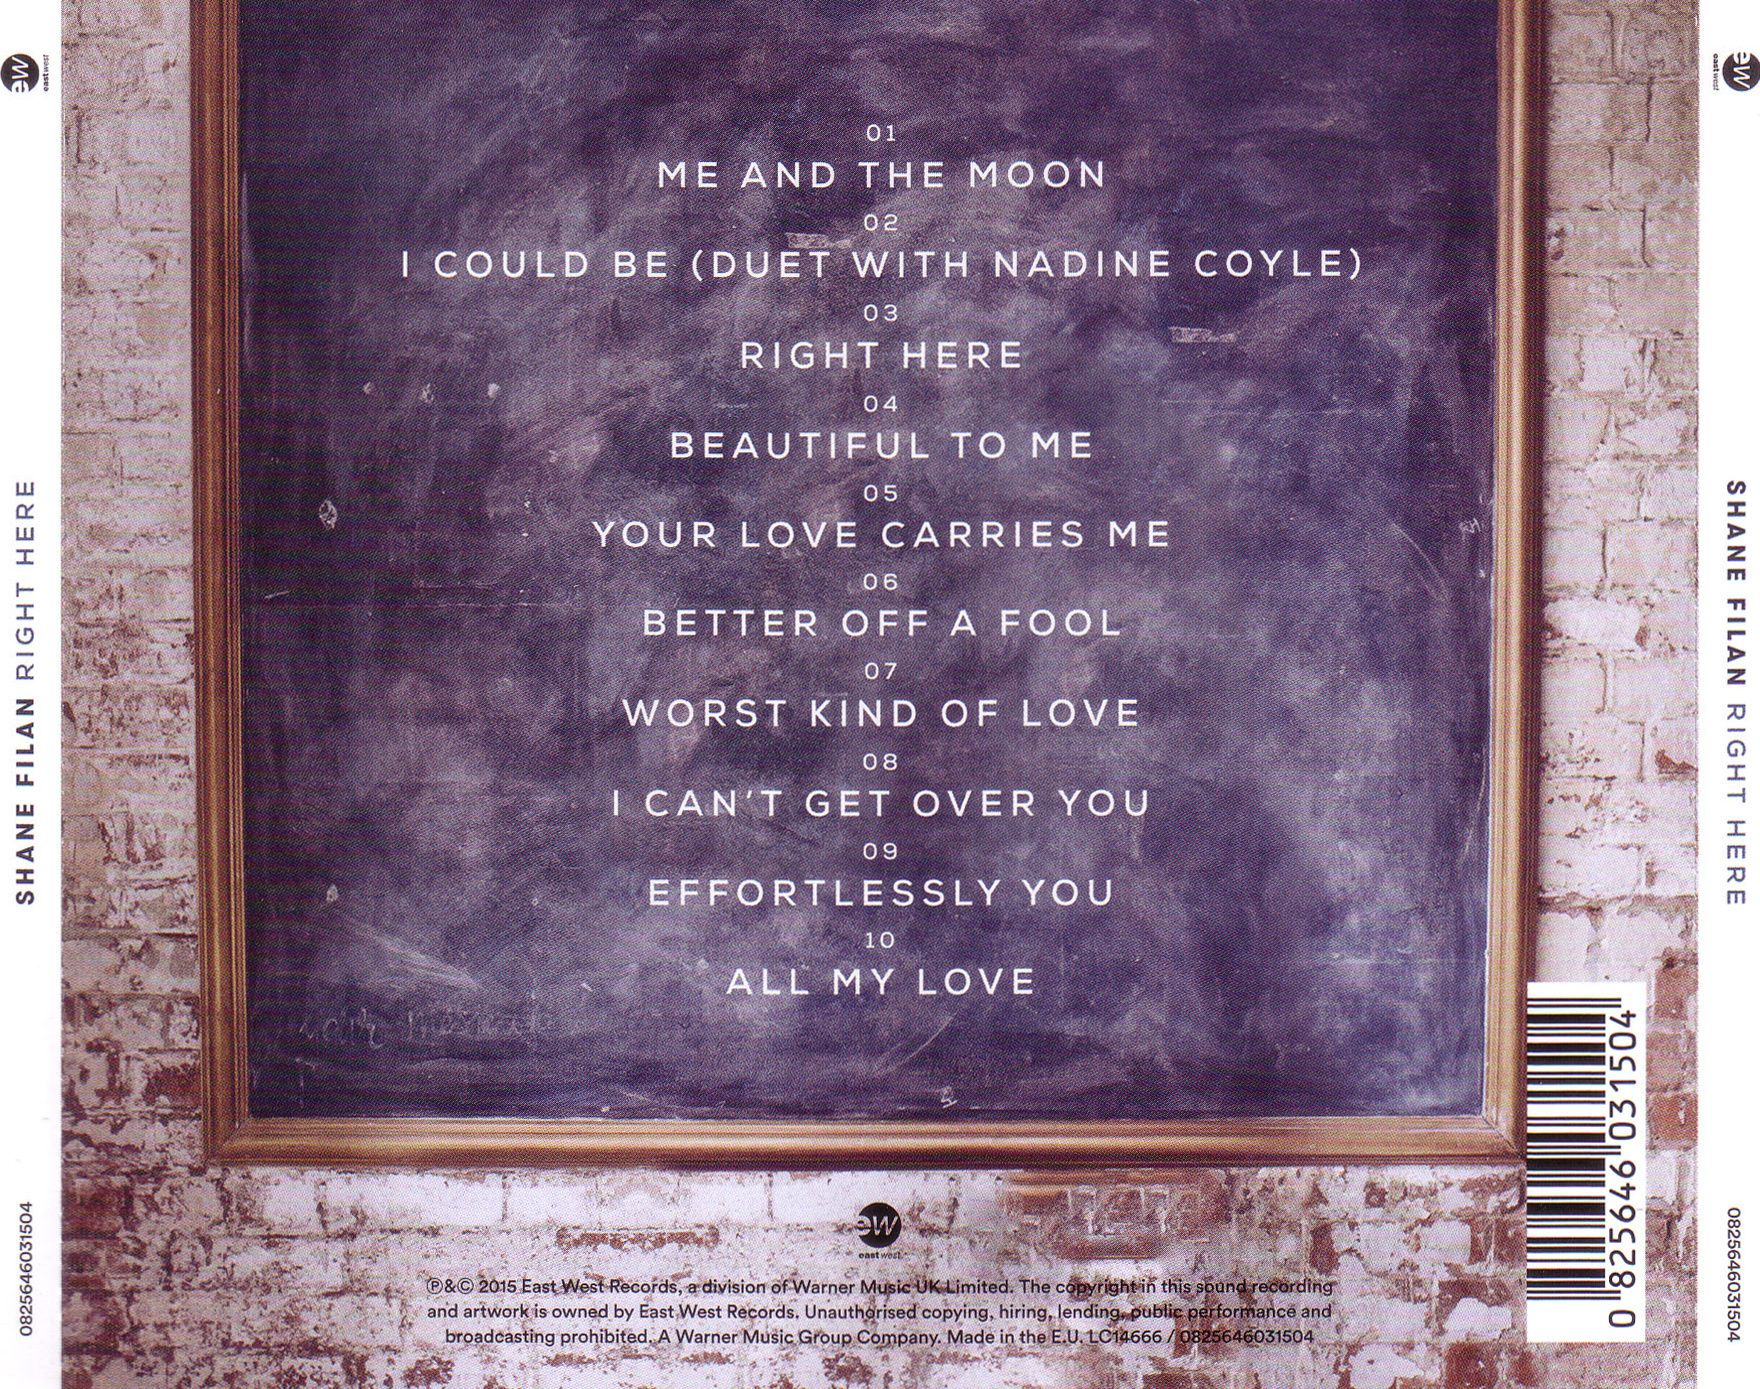 ew
eastwest
SHANE FILAN RIGHT HERE
0825646031504
01
ME AND THE MOON
02
I COULD BE (DUET WITH NADINE COYLE)
03
RIGHT HERE
04
BEAUTIFUL TO ME
05
YOUR LOVE CARRIES ME
06
BETTER OFF A FOOL
07
WORST KIND OF LOVE
08
I CAN'T GET OVER YOU
09
EFFORTLESSLY YOU
10
ALL MY LOVE
ew
eastwest
℗&© 2015 East West Records, a division of Warner Music UK Limited. The copyright in this sound recording
and artwork is owned by East West Records. Unauthorised copying, hiring, lending, public performance and
broadcasting prohibited. A Warner Music Group Company. Made in the E.U. LC14666 / 0825646031504
0 825646 031504
ew
eastwest
SHANE FILAN RIGHT HERE
0825646031504